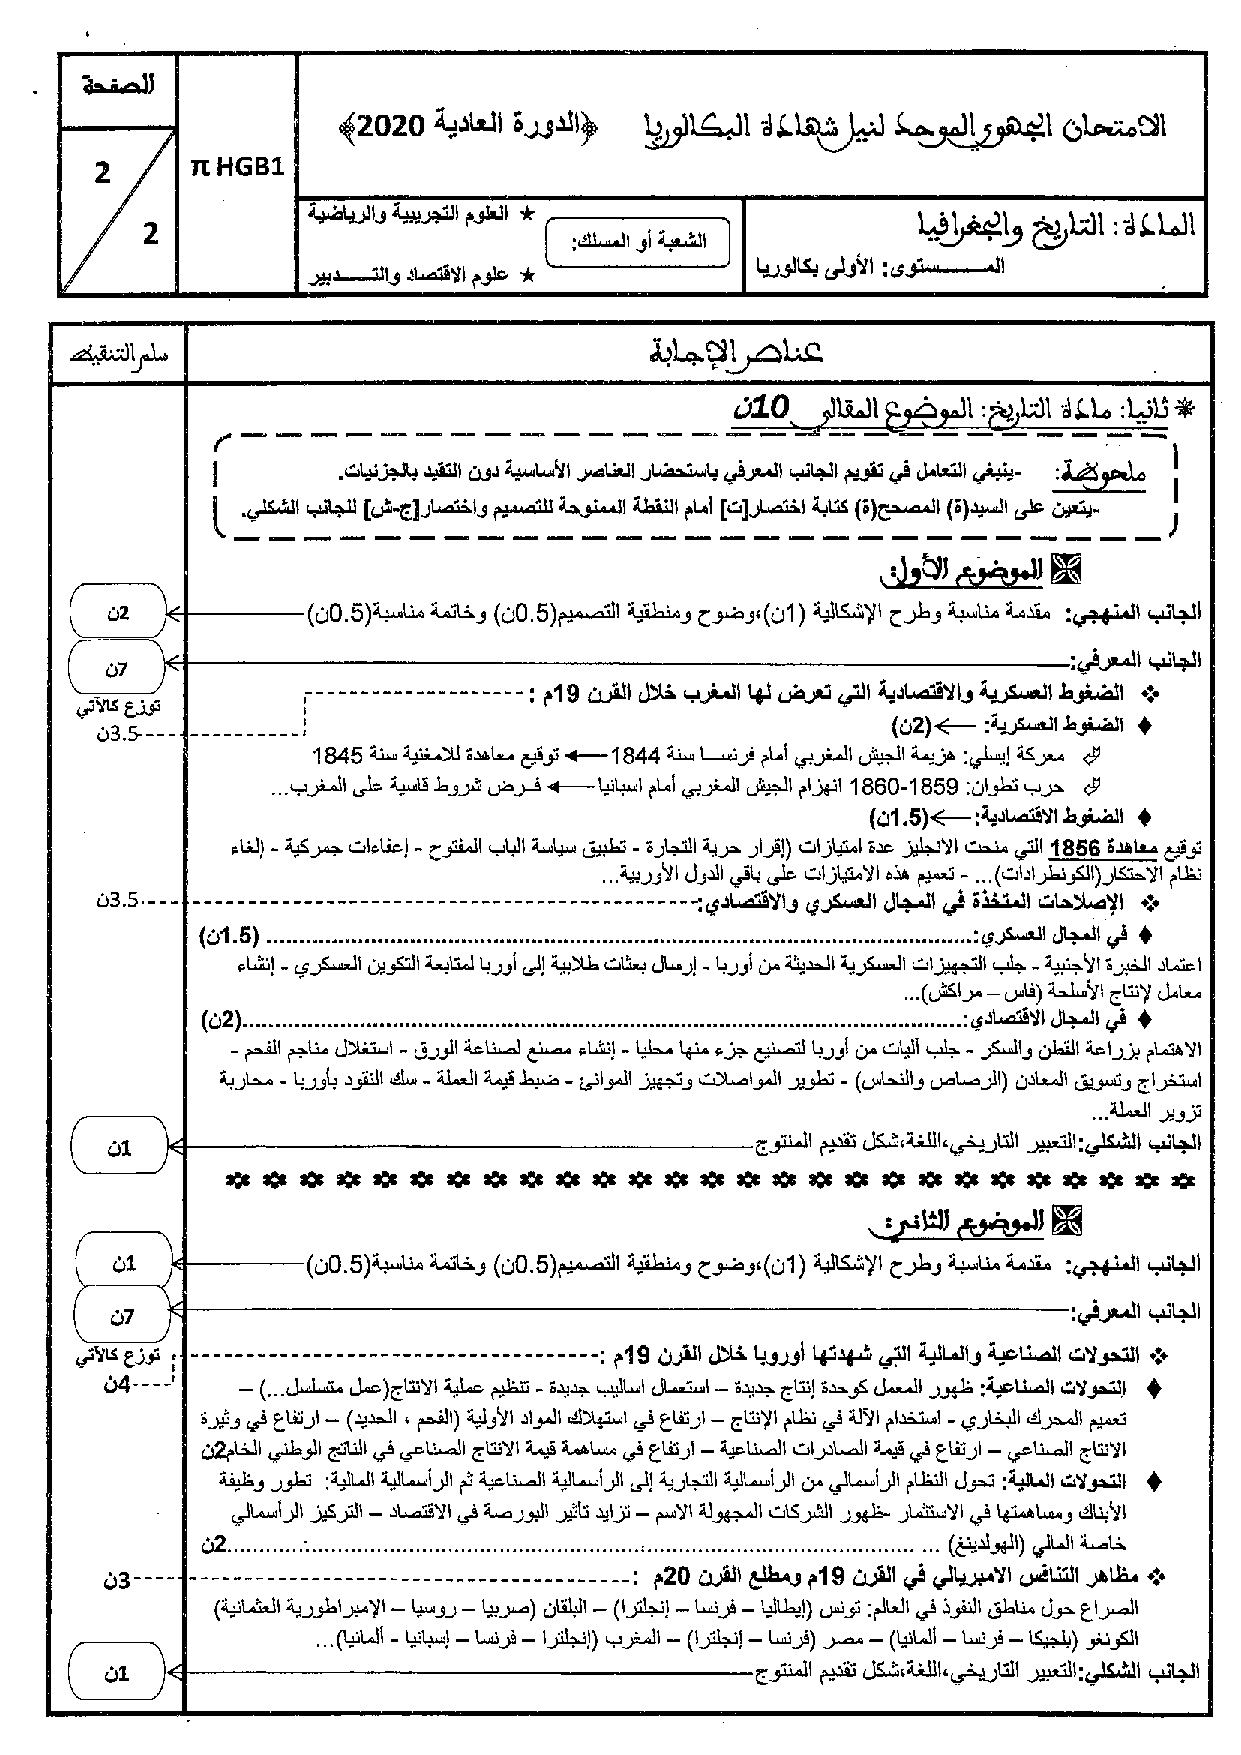 الصفحة
2
2
π HGB1
الامتحان الجهوي الموحد لنيل شهادة البكالوريا ﴿الدورة العادية 2020﴾
المادة: التاريخ والجغرافيا
المـــــــستوى: الأولى بكالوريا
الشعبة أو المسلك:
★ العلوم التجريبية والرياضية
★ علوم الاقتصاد والتـــــدبير
عناصر الإجابة
سلم التنقيط
ثانيا: مادة التاريخ: الموضوع المقالي 10ن
ملحوظة: -ينبغي التعامل في تقويم الجانب المعرفي باستحضار العناصر الأساسية دون التقيد بالجزئيات.
-يتعين على السيد(ة) المصحح(ة) كتابة اختصار[ت] أمام النقطة الممنوحة للتصميم واختصار[ج-ش] للجانب الشكلي.
الموضوع الأول:
الجانب المنهجي: مقدمة مناسبة وطرح الإشكالية (1ن)،وضوح ومنطقية التصميم(0.5ن) وخاتمة مناسبة(0.5ن)
2ن
الجانب المعرفي:
7ن
توزع كالآتي
❖ الضغوط العسكرية والاقتصادية التي تعرض لها المغرب خلال القرن 19م :
3.5ن
♦ الضغوط العسكرية: (2ن)
معركة إيسلي: هزيمة الجيش المغربي أمام فرنســا سنة 1844 توقيع معاهدة للامغنية سنة 1845
حرب تطوان: 1859-1860 انهزام الجيش المغربي أمام اسبانيا فـرض شروط قاسية على المغرب...
♦ الضغوط الاقتصادية: (1.5ن)
توقيع معاهدة 1856 التي منحت الانجليز عدة امتيازات (إقرار حرية التجارة - تطبيق سياسة الباب المفتوح - إعفاءات جمركية - إلغاء
نظام الاحتكار(الكونطرادات)... - تعميم هذه الامتيازات على باقي الدول الأوربية...
❖ الإصلاحات المتخذة في المجال العسكري والاقتصادي:
3.5ن
♦ في المجال العسكري: (1.5ن)
اعتماد الخبرة الأجنبية - جلب التجهيزات العسكرية الحديثة من أوربا - إرسال بعثات طلابية إلى أوربا لمتابعة التكوين العسكري - إنشاء
معامل لإنتاج الأسلحة (فاس – مراكش)...
♦ في المجال الاقتصادي: (2ن)
الاهتمام بزراعة القطن والسكر - جلب آليات من أوربا لتصنيع جزء منها محليا - إنشاء مصنع لصناعة الورق - استغلال مناجم الفحم -
استخراج وتسويق المعادن (الرصاص والنحاس) - تطوير المواصلات وتجهيز الموانئ - ضبط قيمة العملة - سك النقود بأوربا - محاربة
تزوير العملة...
الجانب الشكلي:التعبير التاريخي،اللغة،شكل تقديم المنتوج
1ن
الموضوع الثاني:
الجانب المنهجي: مقدمة مناسبة وطرح الإشكالية (1ن)،وضوح ومنطقية التصميم(0.5ن) وخاتمة مناسبة(0.5ن)
1ن
الجانب المعرفي:
7ن
توزع كالآتي
❖ التحولات الصناعية والمالية التي شهدتها أوروبا خلال القرن 19م :
4ن
♦ التحولات الصناعية: ظهور المعمل كوحدة إنتاج جديدة – استعمال اساليب جديدة - تنظيم عملية الانتاج(عمل متسلسل...) –
تعميم المحرك البخاري - استخدام الآلة في نظام الإنتاج – ارتفاع في استهلاك المواد الأولية (الفحم ، الحديد) – ارتفاع في وثيرة
الانتاج الصناعي – ارتفاع في قيمة الصادرات الصناعية – ارتفاع في مساهمة قيمة الانتاج الصناعي في الناتج الوطني الخام2ن
♦ التحولات المالية: تحول النظام الرأسمالي من الرأسمالية التجارية إلى الرأسمالية الصناعية ثم الرأسمالية المالية: تطور وظيفة
الأبناك ومساهمتها في الاستثمار -ظهور الشركات المجهولة الاسم – تزايد تأثير البورصة في الاقتصاد – التركيز الرأسمالي
خاصة المالي (الهولدينغ) ... 2ن
❖ مظاهر التنافس الامبريالي في القرن 19م ومطلع القرن 20م :
3ن
الصراع حول مناطق النفوذ في العالم: تونس (إيطاليا – فرنسا – إنجلترا) – البلقان (صربيا – روسيا – الإمبراطورية العثمانية)
الكونغو (بلجيكا – فرنسا – ألمانيا) – مصر (فرنسا – إنجلترا) – المغرب (إنجلترا – فرنسا – إسبانيا - ألمانيا)...
الجانب الشكلي:التعبير التاريخي،اللغة،شكل تقديم المنتوج
1ن